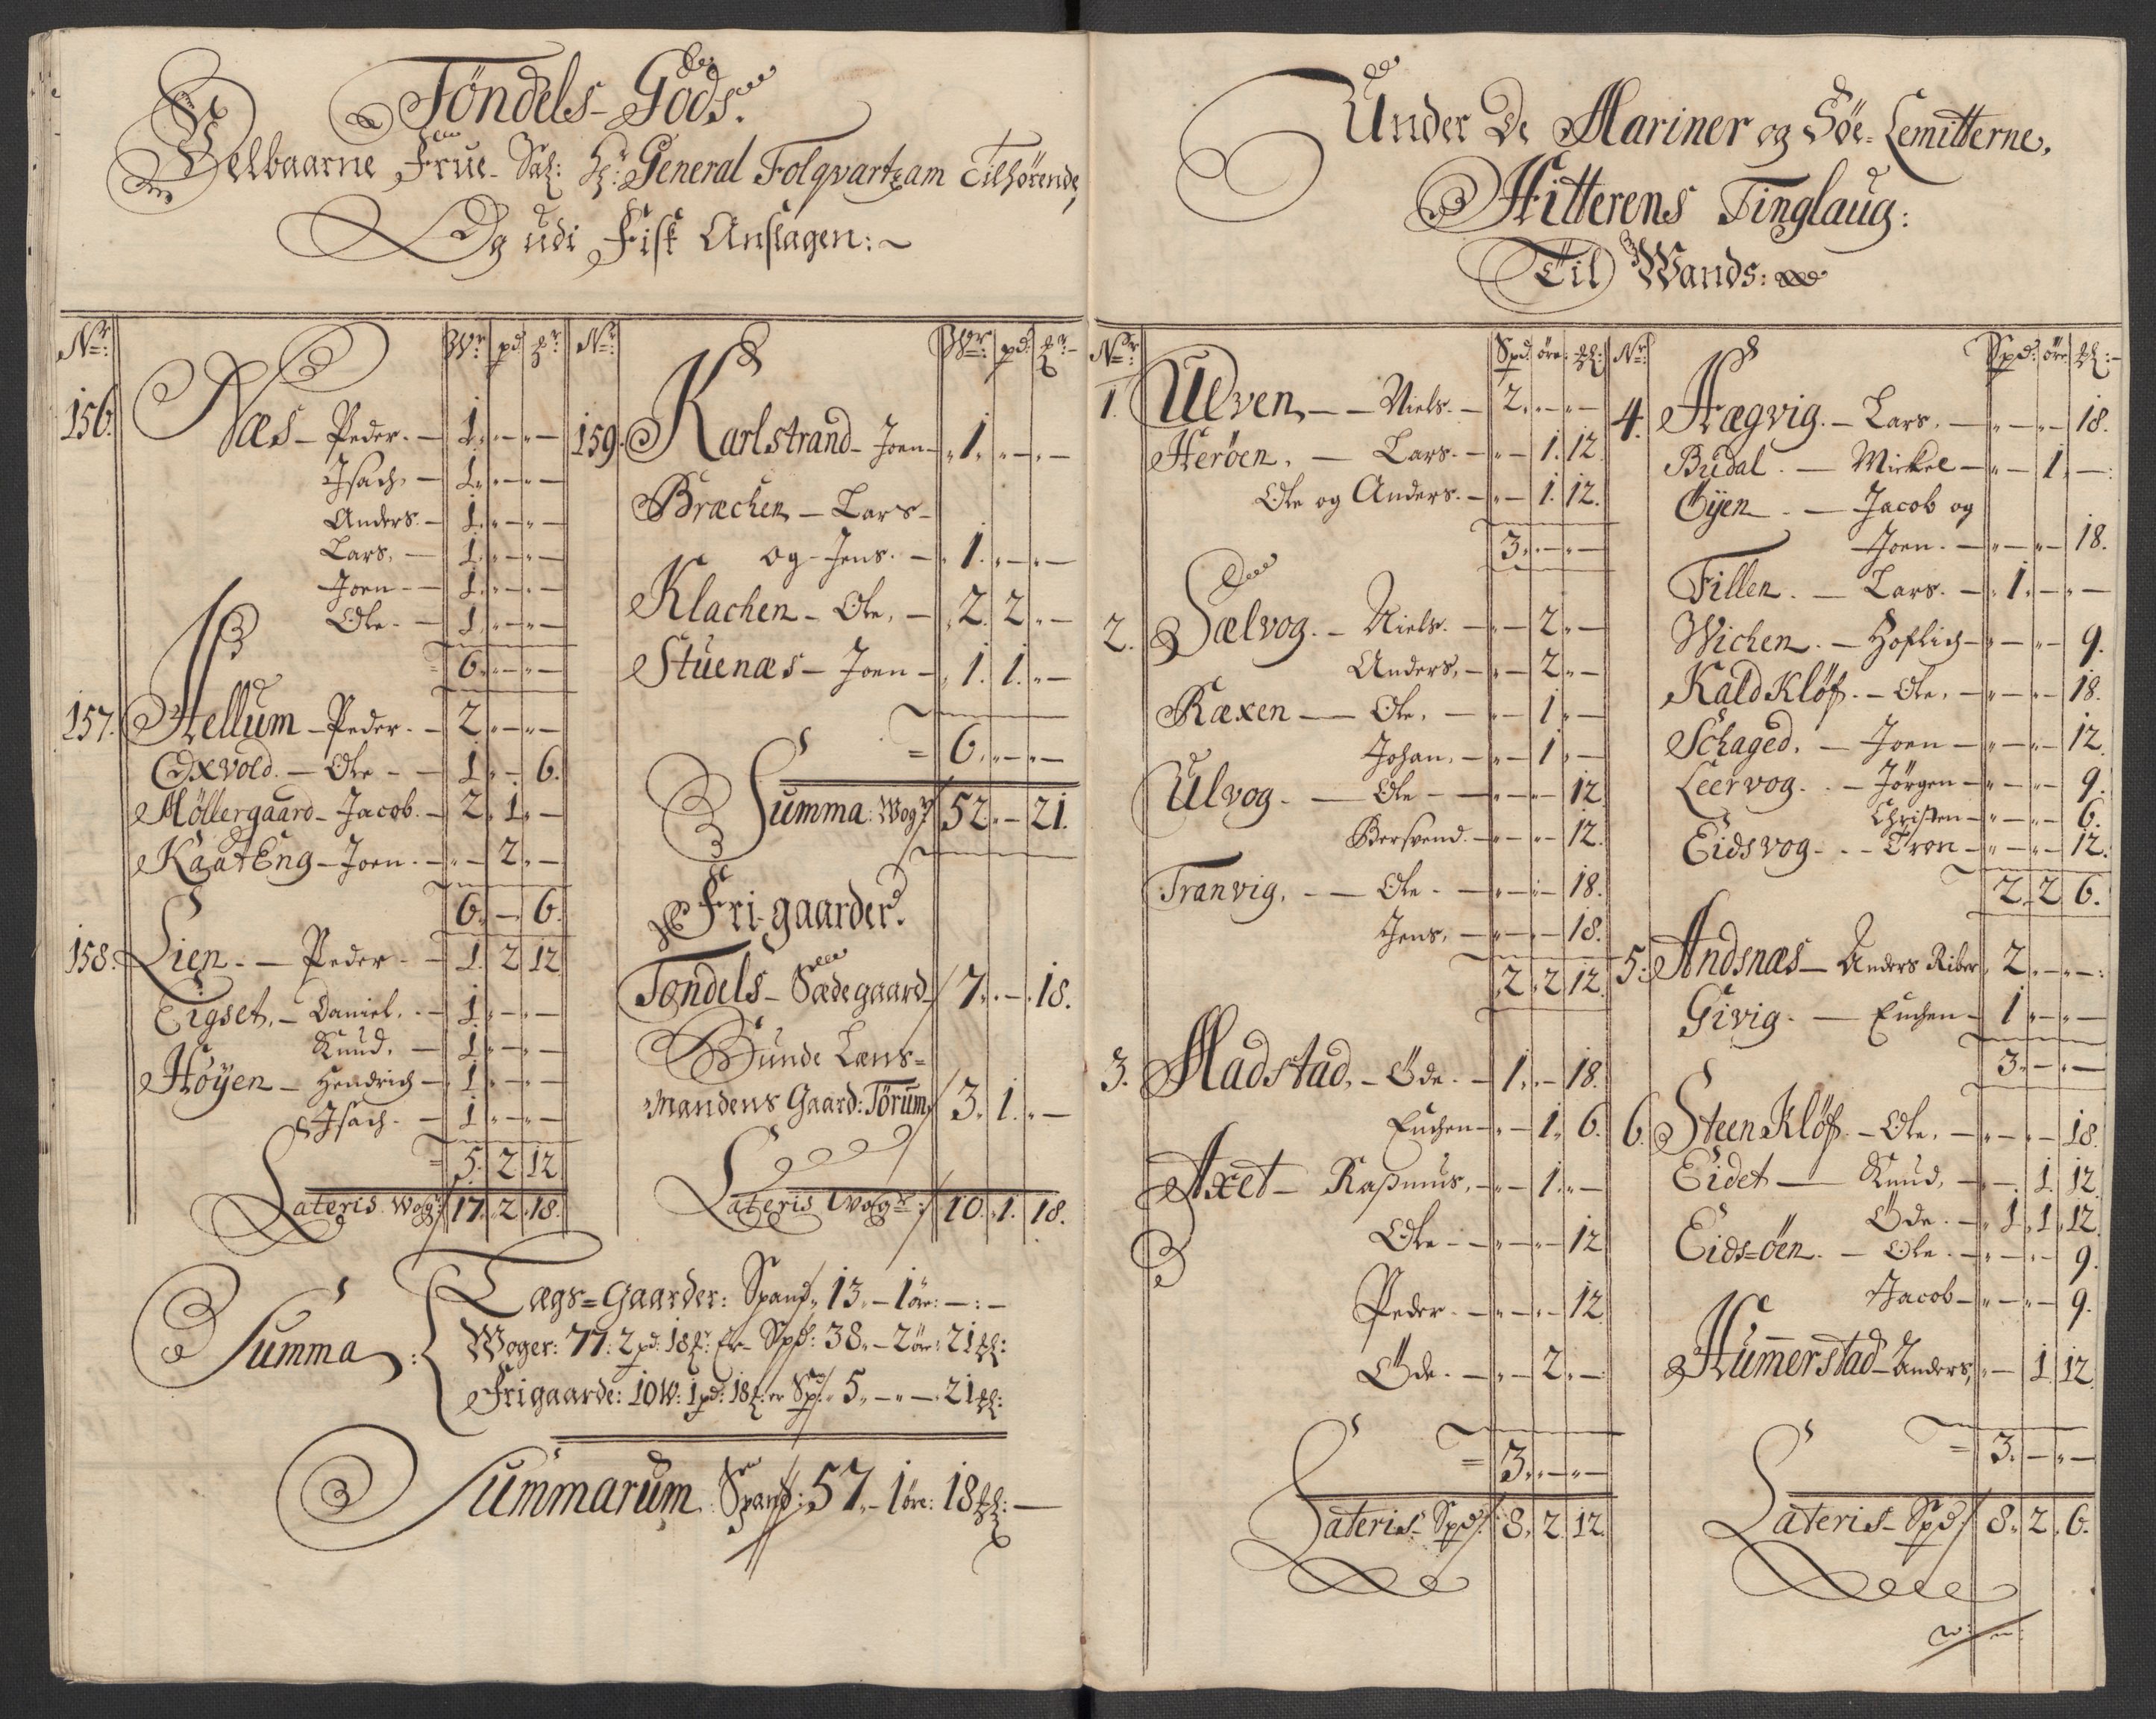 Töndels-Gods.
Velbaarne Frue Sal: Hr: General Folqvartzam Tilhørende,
Og udi Fisk Anslagen:~
Nr: Wr: pd
156. Næs - Peder. - 1. - -
Isach. - 1. - -
Anders. - 1. - -
Lars. - 1. - -
Joen - 1. - -
Ole. - 1. - -
6. - -
157. Hellum - Peder. - 2 - -
Oxvold. - Ole - 1. - 6.
Möllergaard - Jacob. - 2. 1. -
KaatEng - Joen. - - 2. -
6. - 6.
158. Lien. - Peder - 1. 2 12
Eigset. - Daniel. - 1. - -
Knud. - 1. - -
Höyen - Hendrich - 1. - -
Isach. - 1. - -
= 5. 2 12
Lateris Wog: 17. 2. 18.
Nr: Wr: pd:
159. Karlstrand - Joen - 1. - -
Bræchen - Lars -
og - Jens. - 1. - -
Klachen - Ole. - 2. 2. -
Stuenæs - Joen - 1. 1. -
= 6. - -
Summa: Wogr 52. - 21.
Fri-gaarder.
Tondels-Sædegaard 7. - 18.
Bunde Læns=
mandens Gaard: Törum, 3. 1. -
Lateris Wogr: 10. 1. 18.
Summa:
Lægs=Gaarder: Spand. 13. - 1 öre: - : -
Woger: 77: 2 pd: 18 : Er - Spd: 38. - 2 öre: 21
Frigaarde: 10 W: 1 pd: 18 : er Spd: 5. - - 21
Summarum Spand: 57. - 1 öre: 18 : -
Under De Mariner og Söe-Lemitterne,
Hitterens Tinglaug:
Til Wands:
Nr: Spd: öre:
1. Ulven, - - Niels. - 2. - -
Heröen. - Lars. - - 1. 12
Ole og Anders. - - 1. 12.
3. - -
2. Sælvog. - Niels. - - 2. -
Anders. - - 2. -
Ræxen - Ole. - - 1. -
Johan. - - 1. -
Ulvog. - Ole - - - 12
Bersvend. - - - 12.
Tranvig. - Ole - - - 18.
Jens. - - - 18.
2. 2. 12.
3. Madstad. - Öde. - 1. - 18.
Enchen - - 1. 6.
Axet - Rasmus. - - 1. -
Ole - - - 12
Peder. - - - 12
Öde. - - 2. -
= 3. - -
Lateris - Spd: 8. 2. 12.
Nr: Spd: öre
4. Hægvig. - Lars. - - - 18.
Budal. - Mickel - - 1. -
Öyen. - Jacob og
Joen. - - - 18.
Fillen. - Lars. - 1. - -
Wichen. - - - - 9.
Kaldklöf. - Ole. - - - 18.
Schaged. - Joen - - - 12
Leervog. - Jörgen - - - 9.
Christen - - - 6.
Eidsvog. - Tron - - - 12.
2. 2 6.
5: Andsnæs - Anders Riber 2. - -
Givig. - Enchen - 1. - -
3. - -
6. SteenKlöf. - Ole. - - - 18.
Eidet - Knud. - - 1. 12
Öde. - 1. 1. 12
Eids=öen. - Ole. - - - 9.
Jacob - - - 9.
Hummerstad - Anders, - 1. 12
= 3. - -
Lateris - Spd: 8. 2. 6.